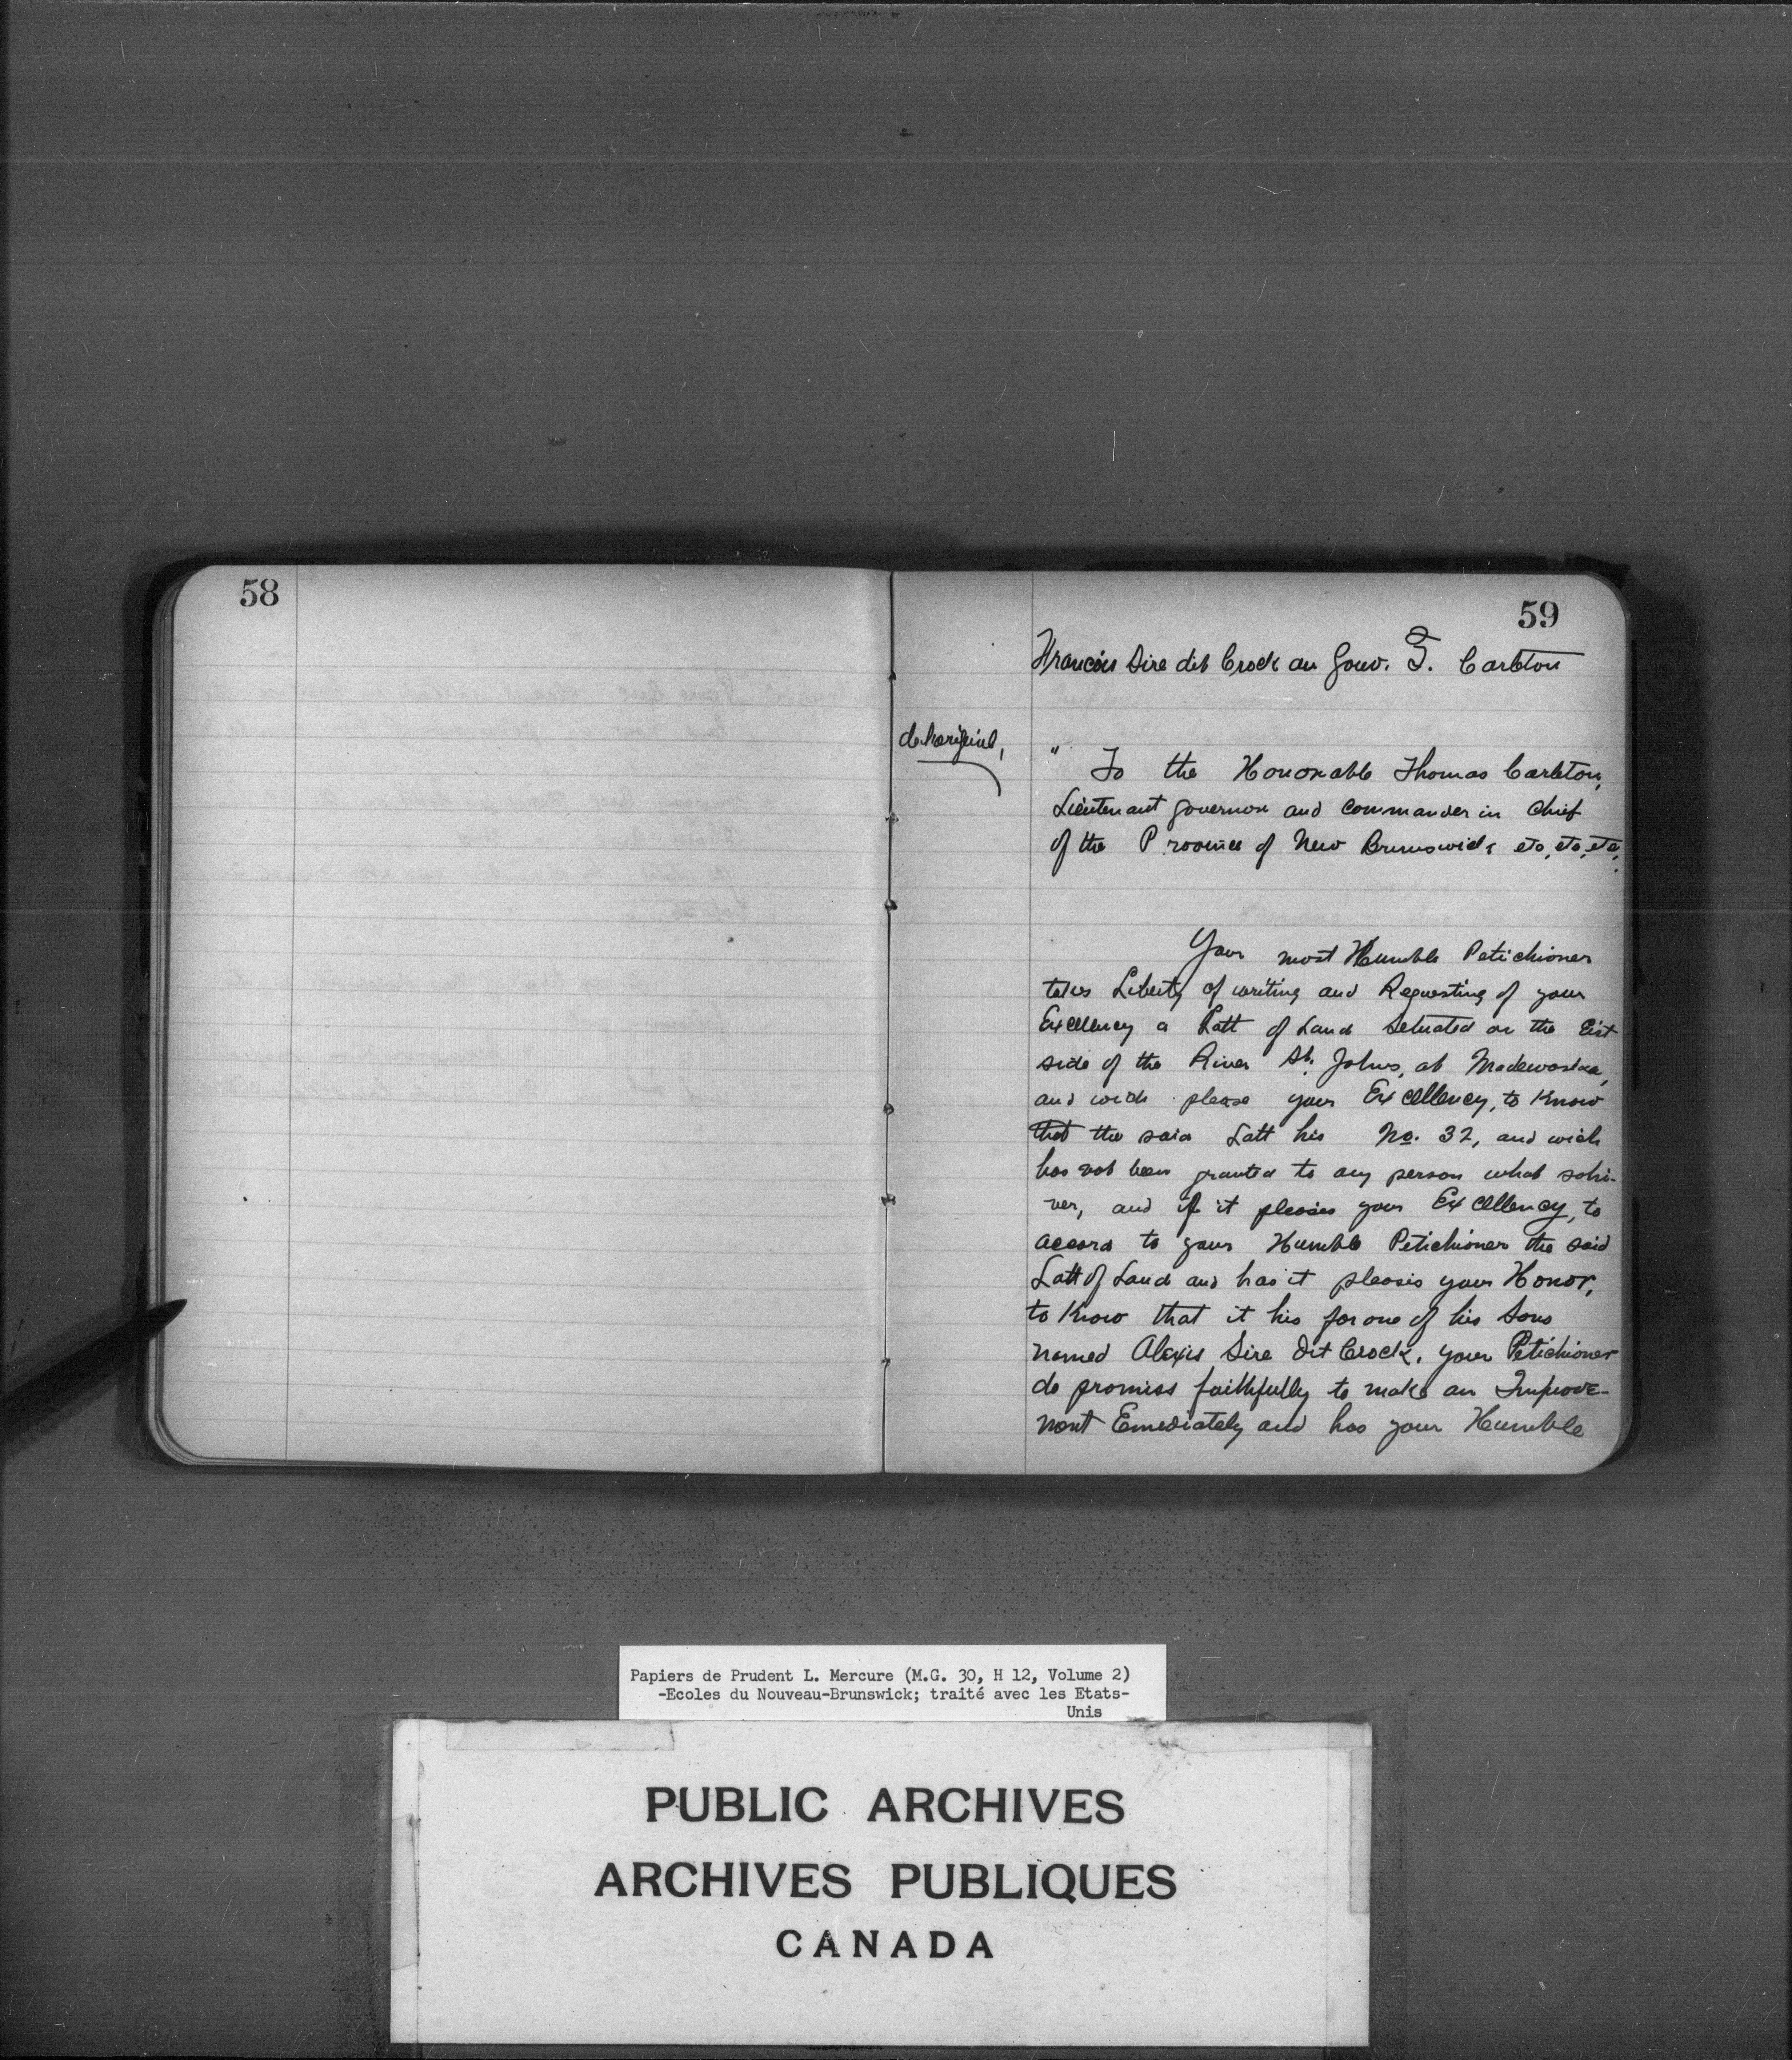 58
59
Francois Sire dit Crock au Gouv. T. Carleton
de l'original,
" To the Hononable Thomas Carleton,
Lieutenant governor and commander in chief
of the Province of New Brunswick etc, etc, etc,
Your most Humble Petichioner
takes Liberty of writing and Requesting of your
Excellency a Latt of Land Setuated on the Eist
side of the River St. Johns, at Madewaska,
and wich please your Excellency, to Know
that the said Latt his No. 32, and wich
has not been granted to any person what sohi-
ver, and if it pleasis your Excellency, to
accord to your Humble Petichioner the said
Latt of Land and has it pleasis your Honor,
to Know that it his for one of his Sons
named Alexis Sire Dit Crock, your Petichioner
do promiss faithfully to make an Improve-
ment Emediately and has your Humble
Papiers de Prudent L. Mercure (M.G. 30, H 12, Volume 2)
-Ecoles du Nouveau-Brunswick; traité avec les Etats-
Unis
PUBLIC ARCHIVES
ARCHIVES PUBLIQUES
CANADA